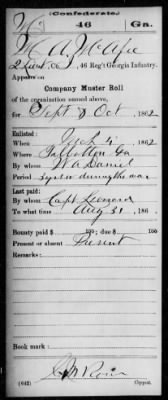 (Confederate.)
Mc 46 Ga.
M A McAfee
2 Lieut, Co , 46 Reg't Georgia Infantry.
Appears on
Company Muster Roll
of the organization named above,
for Sept & Oct , 1862
Enlisted:
When Mch 4 , 1862
Where Talbotton Ga
By whom W A Daniel
Period 3 yrs or during the war
Last paid:
By whom Capt Leonard
To what time Aug 31 , 186
Bounty paid $ 100; due $ 100
Present or absent Present
Remarks:
Book mark:
(642) Copyist.